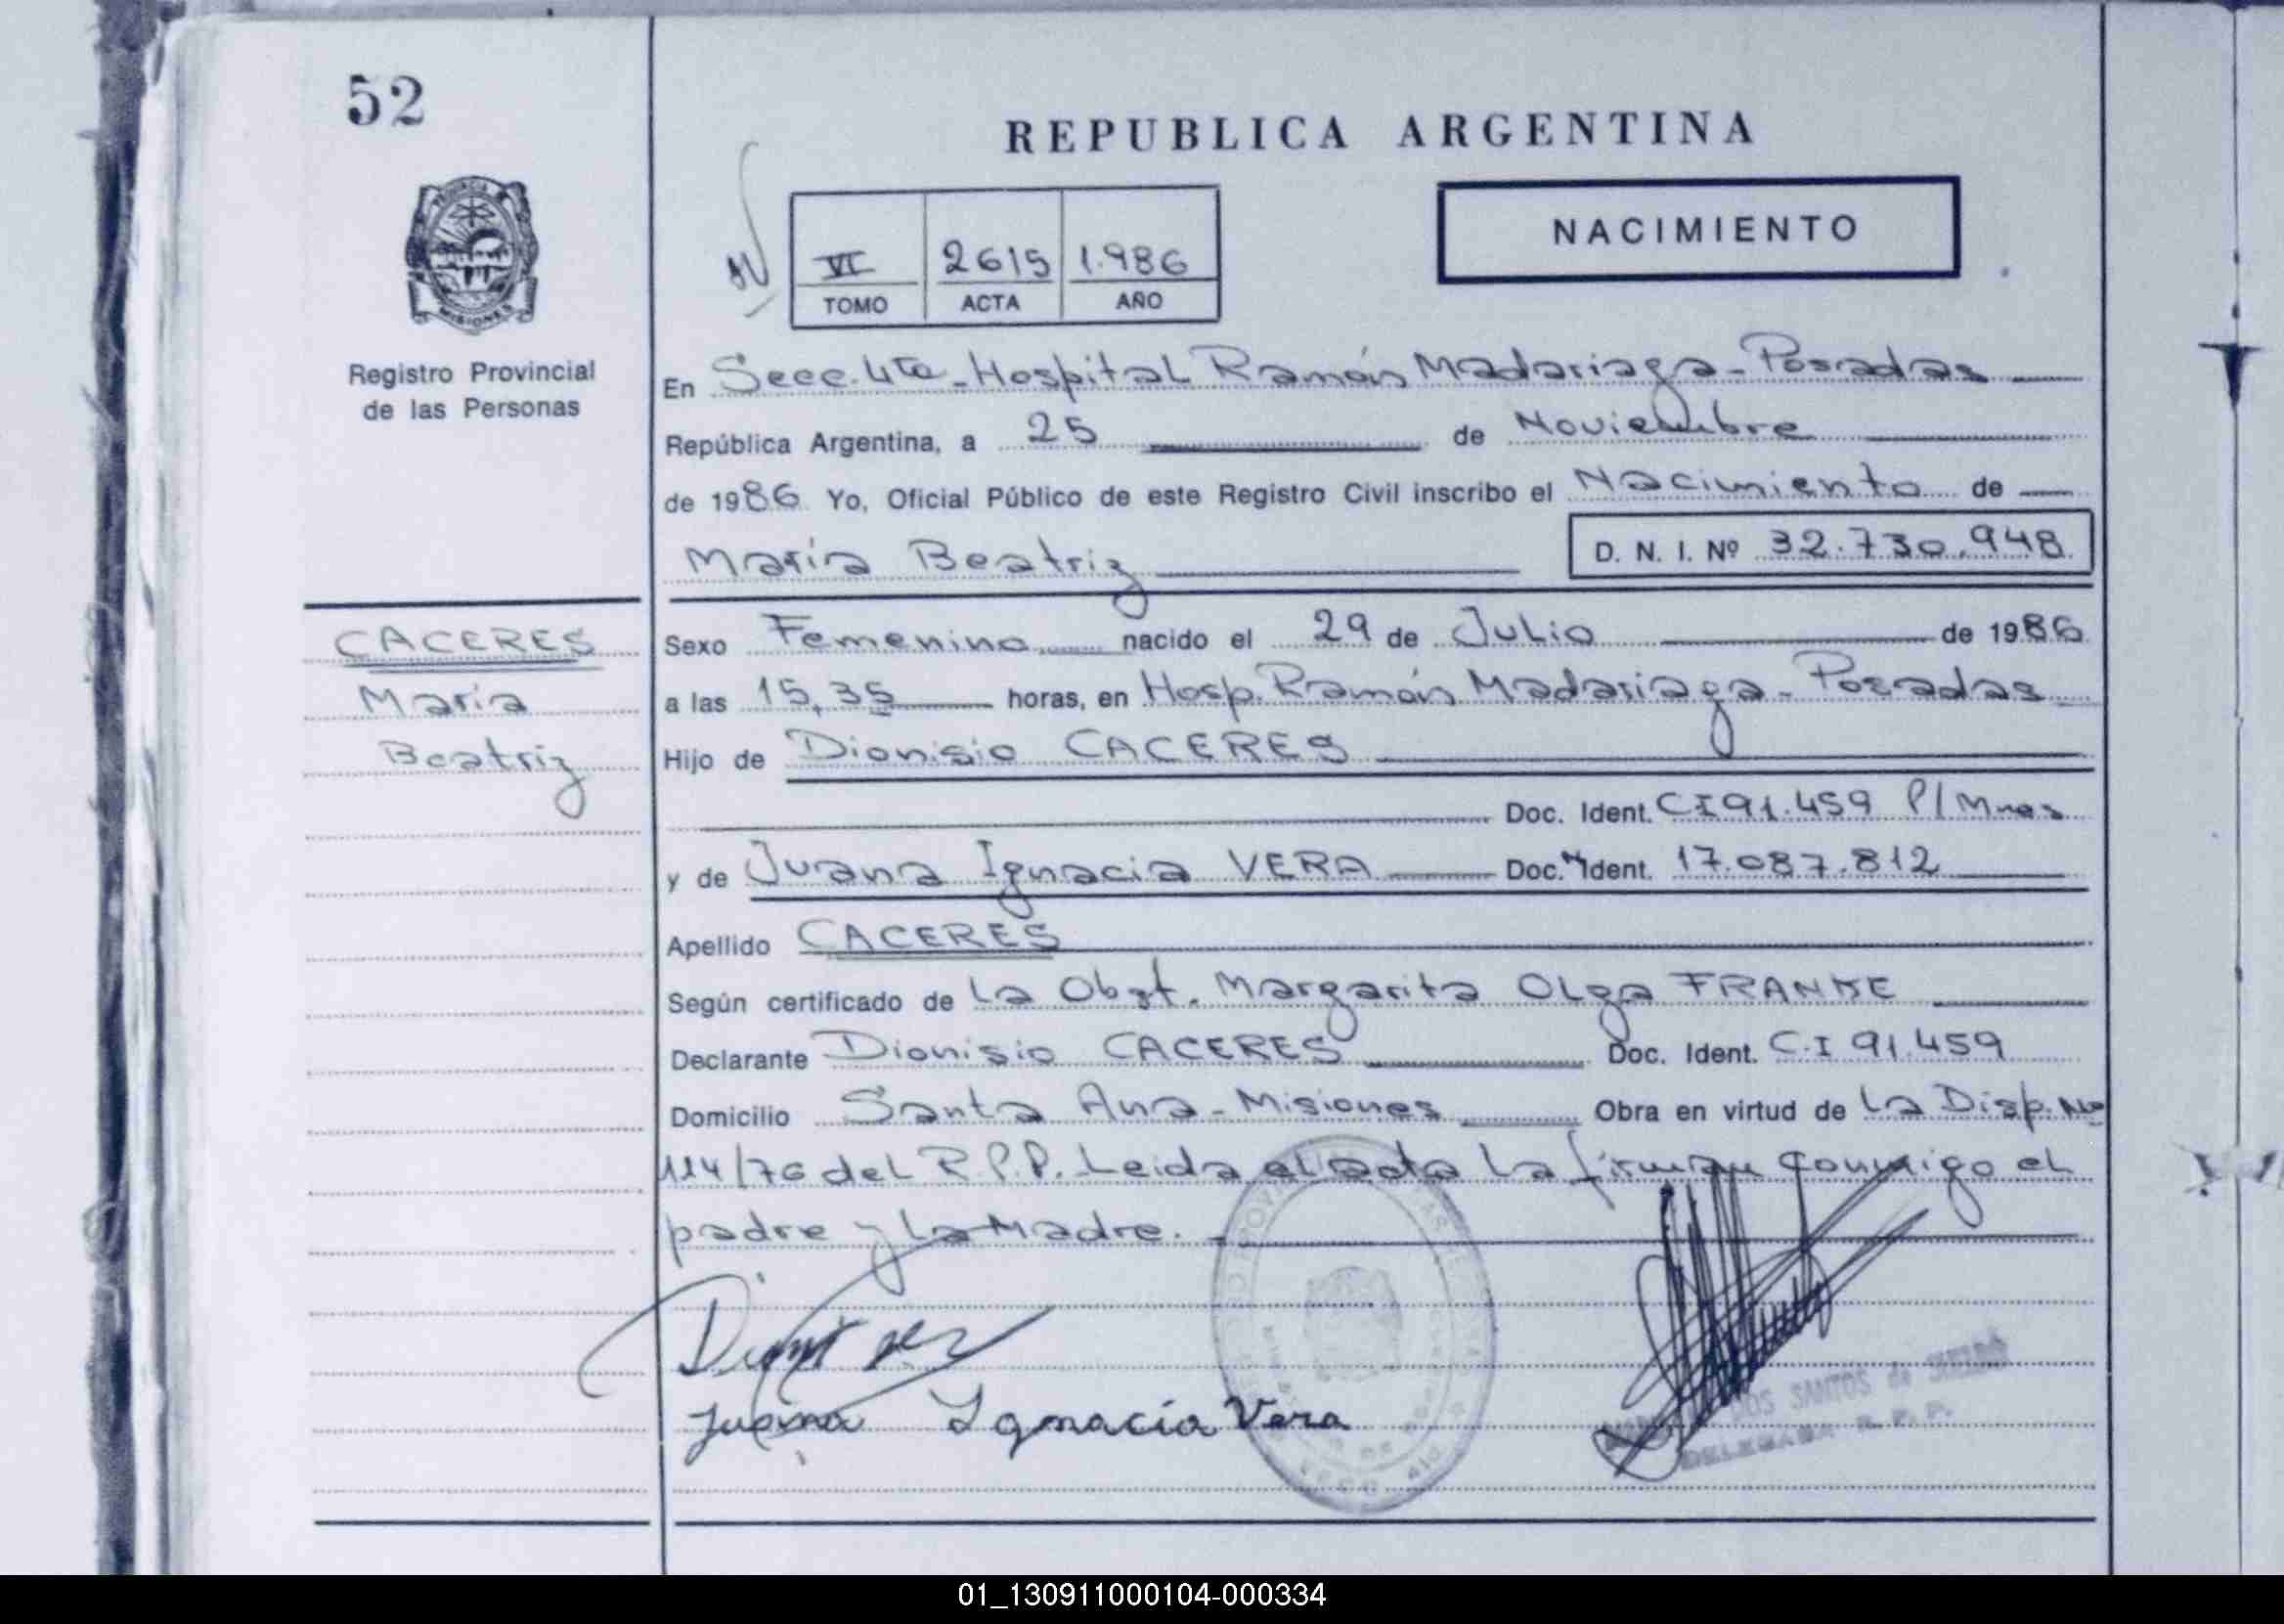 52
REPUBLICA ARGENTINA
VI 2615 1.986
TOMO ACTA AÑO
NACIMIENTO
MISIONES
Registro Provincial
de las Personas
En Secc. 4ta - Hospital Ramón Madariaga - Posadas
República Argentina, a 25 de Noviembre
de 1986 Yo, Oficial Público de este Registro Civil inscribo el Nacimiento de
María Beatriz
D. N. I. Nº 32.730.948
CACERES
María
Beatriz
Sexo Femenino nacido el 29 de Julio de 1986
a las 15,35 horas, en Hosp. Ramón Madariaga - Posadas
Hijo de Dionisio CACERES
Doc. Ident. CI 91.459 P/Mnes
y de Juana Ignacia VERA Doc. Ident. 17.087.812
Apellido CACERES
Según certificado de La Obst. Margarita Olga FRANKE
Declarante Dionisio CACERES Doc. Ident. C.I 91.459
Domicilio Santa Ana - Misiones Obra en virtud de La Disp. Nº
114/76 del R.P.P. Leida el acta La firman conmigo el
padre y La Madre. -
Juana Ignacia Vera
DOS SANTOS de
DELEGADA R. P. P.
01_130911000104-000334